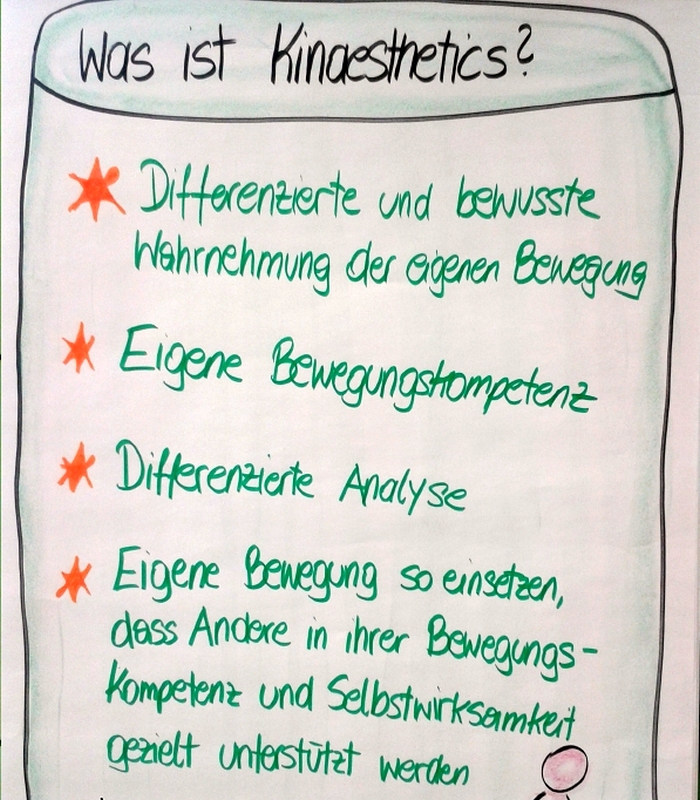 Was ist Kinaesthetics?
Differenzierte und bewusste
Wahrnehmung der eigenen Bewegung
Eigene Bewegungskompetenz
Differenzierte Analyse
Eigene Bewegung so einsetzen,
dass Andere in ihrer Bewegungs-
kompetenz und Selbstwirksamkeit
gezielt unterstützt werden